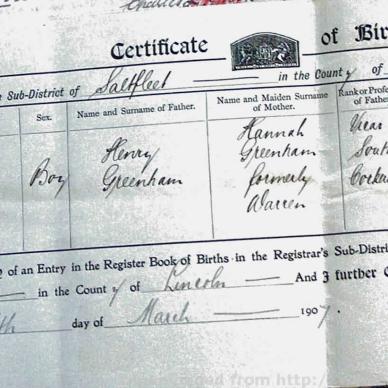 Certificate of Bir
Sub-District of Saltfleet in the County of
Sex. Name and Surname of Father. Name and Maiden Surname of Mother. Rank or Profe of Father
Boy Henry Greenham Hannah Greenham formerly Warren
of an Entry in the Register Book of Births in the Registrar's Sub-Distri
in the County of Lincoln And I further C
th day of March 1907.
from http:/